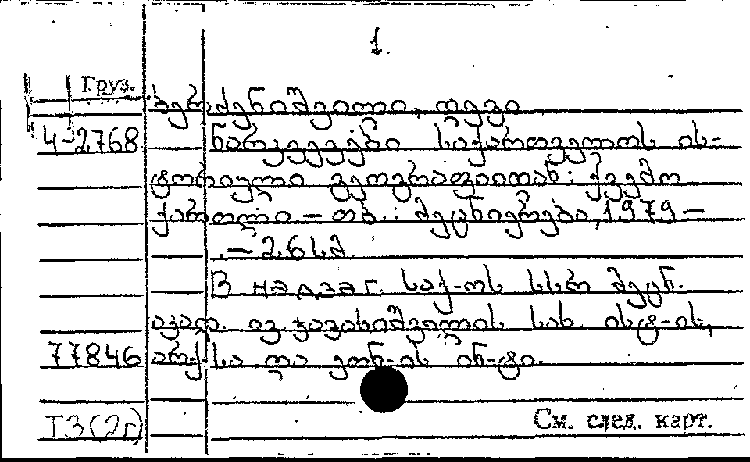 1.
Груз.
ბერძენიშვილი, დევი
4-2768 ნარკვევები საქართველოს ის-
ტორიული გეოგრაფიიდან: ქვემო
ქართლი – თბ.: მეცნიერება, 1979 –
– 261 გვ.
В надзаг. საქ-ოს სსრ მეცნ.
აკად. ივ. ჯავახიშვილის სახ. ისტ-ის,
77846 არქ-სა და ეთნ-ის ინ-ტი.
Т3(2Г)
См. след. карт.